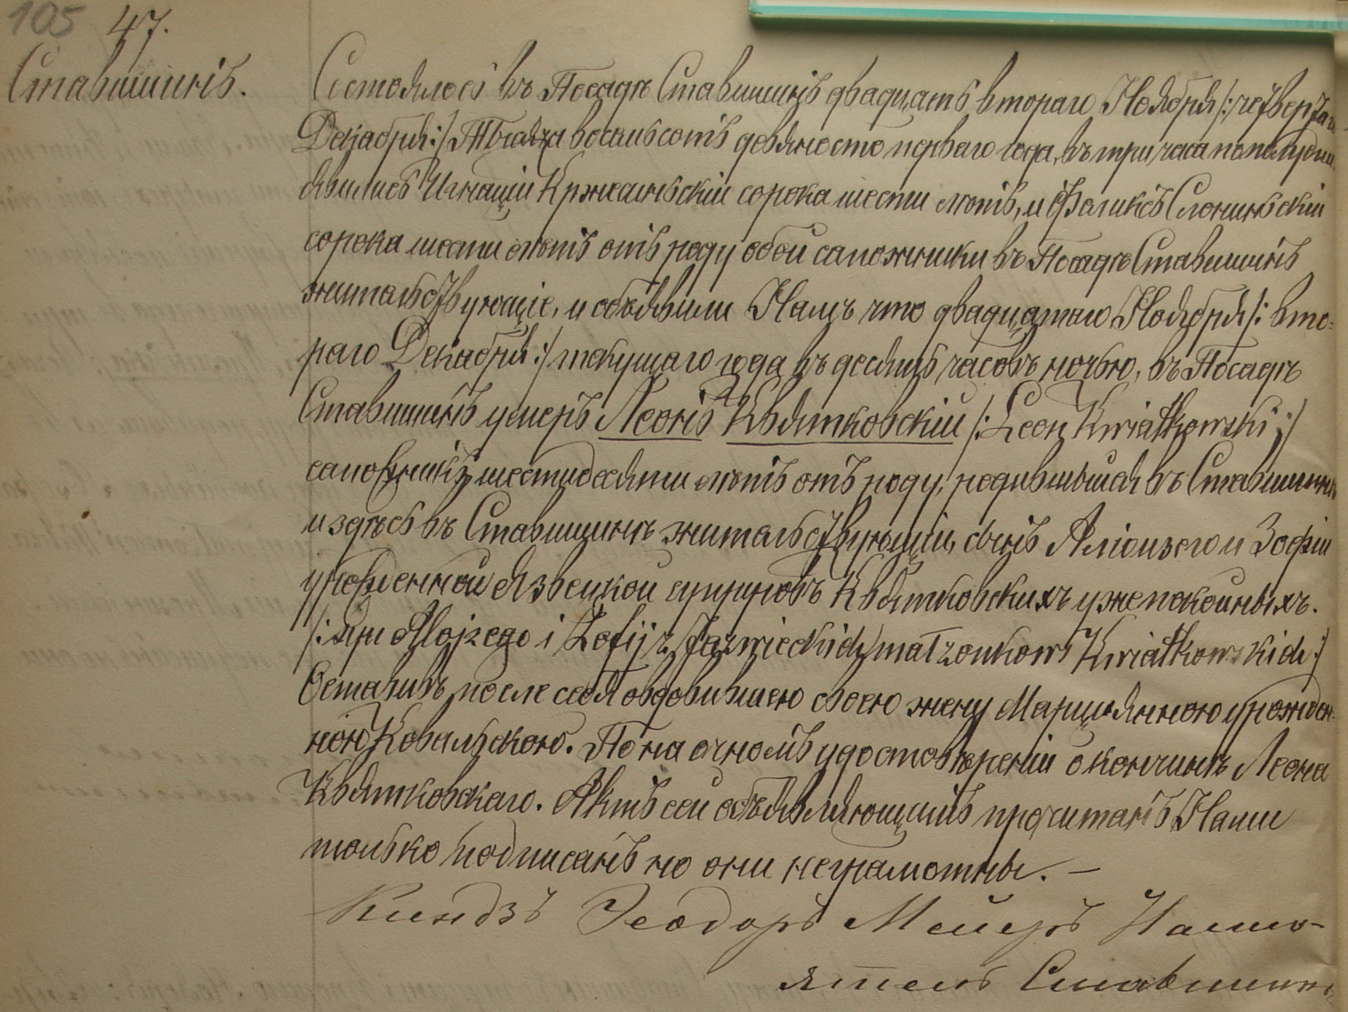 105 47.
Ставишинъ.
Состоялось въ Посадѣ Ставишинъ двадцать втораго Ноября /: четвертаго
Декабря :/ Тысяча восемьсотъ девяносто перваго года, въ три часа по полудни
явились Игнацій Кржесиньскій сорока шести лѣтъ, и Феликсъ Слониньскій
сорока шести лѣтъ отъ роду обои сапожники въ Посадѣ Ставишинѣ
жительствующіе, и объявили Намъ что двадцатаго Ноября /: вто-
раго Декабря :/ текущаго года въ десять часовъ ночью, въ Посадѣ
Ставишинъ умеръ Леонъ Квятковскій /: Leon Kwiatkowski :/
сапожникъ шестидесяти лѣтъ отъ роду, родившыйся въ Ставишинѣ
и здѣсь въ Ставишинѣ жительствующій, сынъ Алюизего и Зофіи
урожденной Язвецкой супруговъ Квятковскихъ уже покойныхъ.
/: syn Alojzego i Zofij z Jazwieckich małżonków Kwiatkowskich :/
Оставивъ после себя овдовившею свою жену Марцыянною урожден-
ною Ковальскою. По на очномъ удостовѣреніи о кончинѣ Леона
Квятковскаго. Актъ сей объявляющимъ прочитанъ Нами
только подписанъ но они неграмотны. —
Ксендзъ Теодоръ Мейеръ Насто-
ятель Ставишинъ